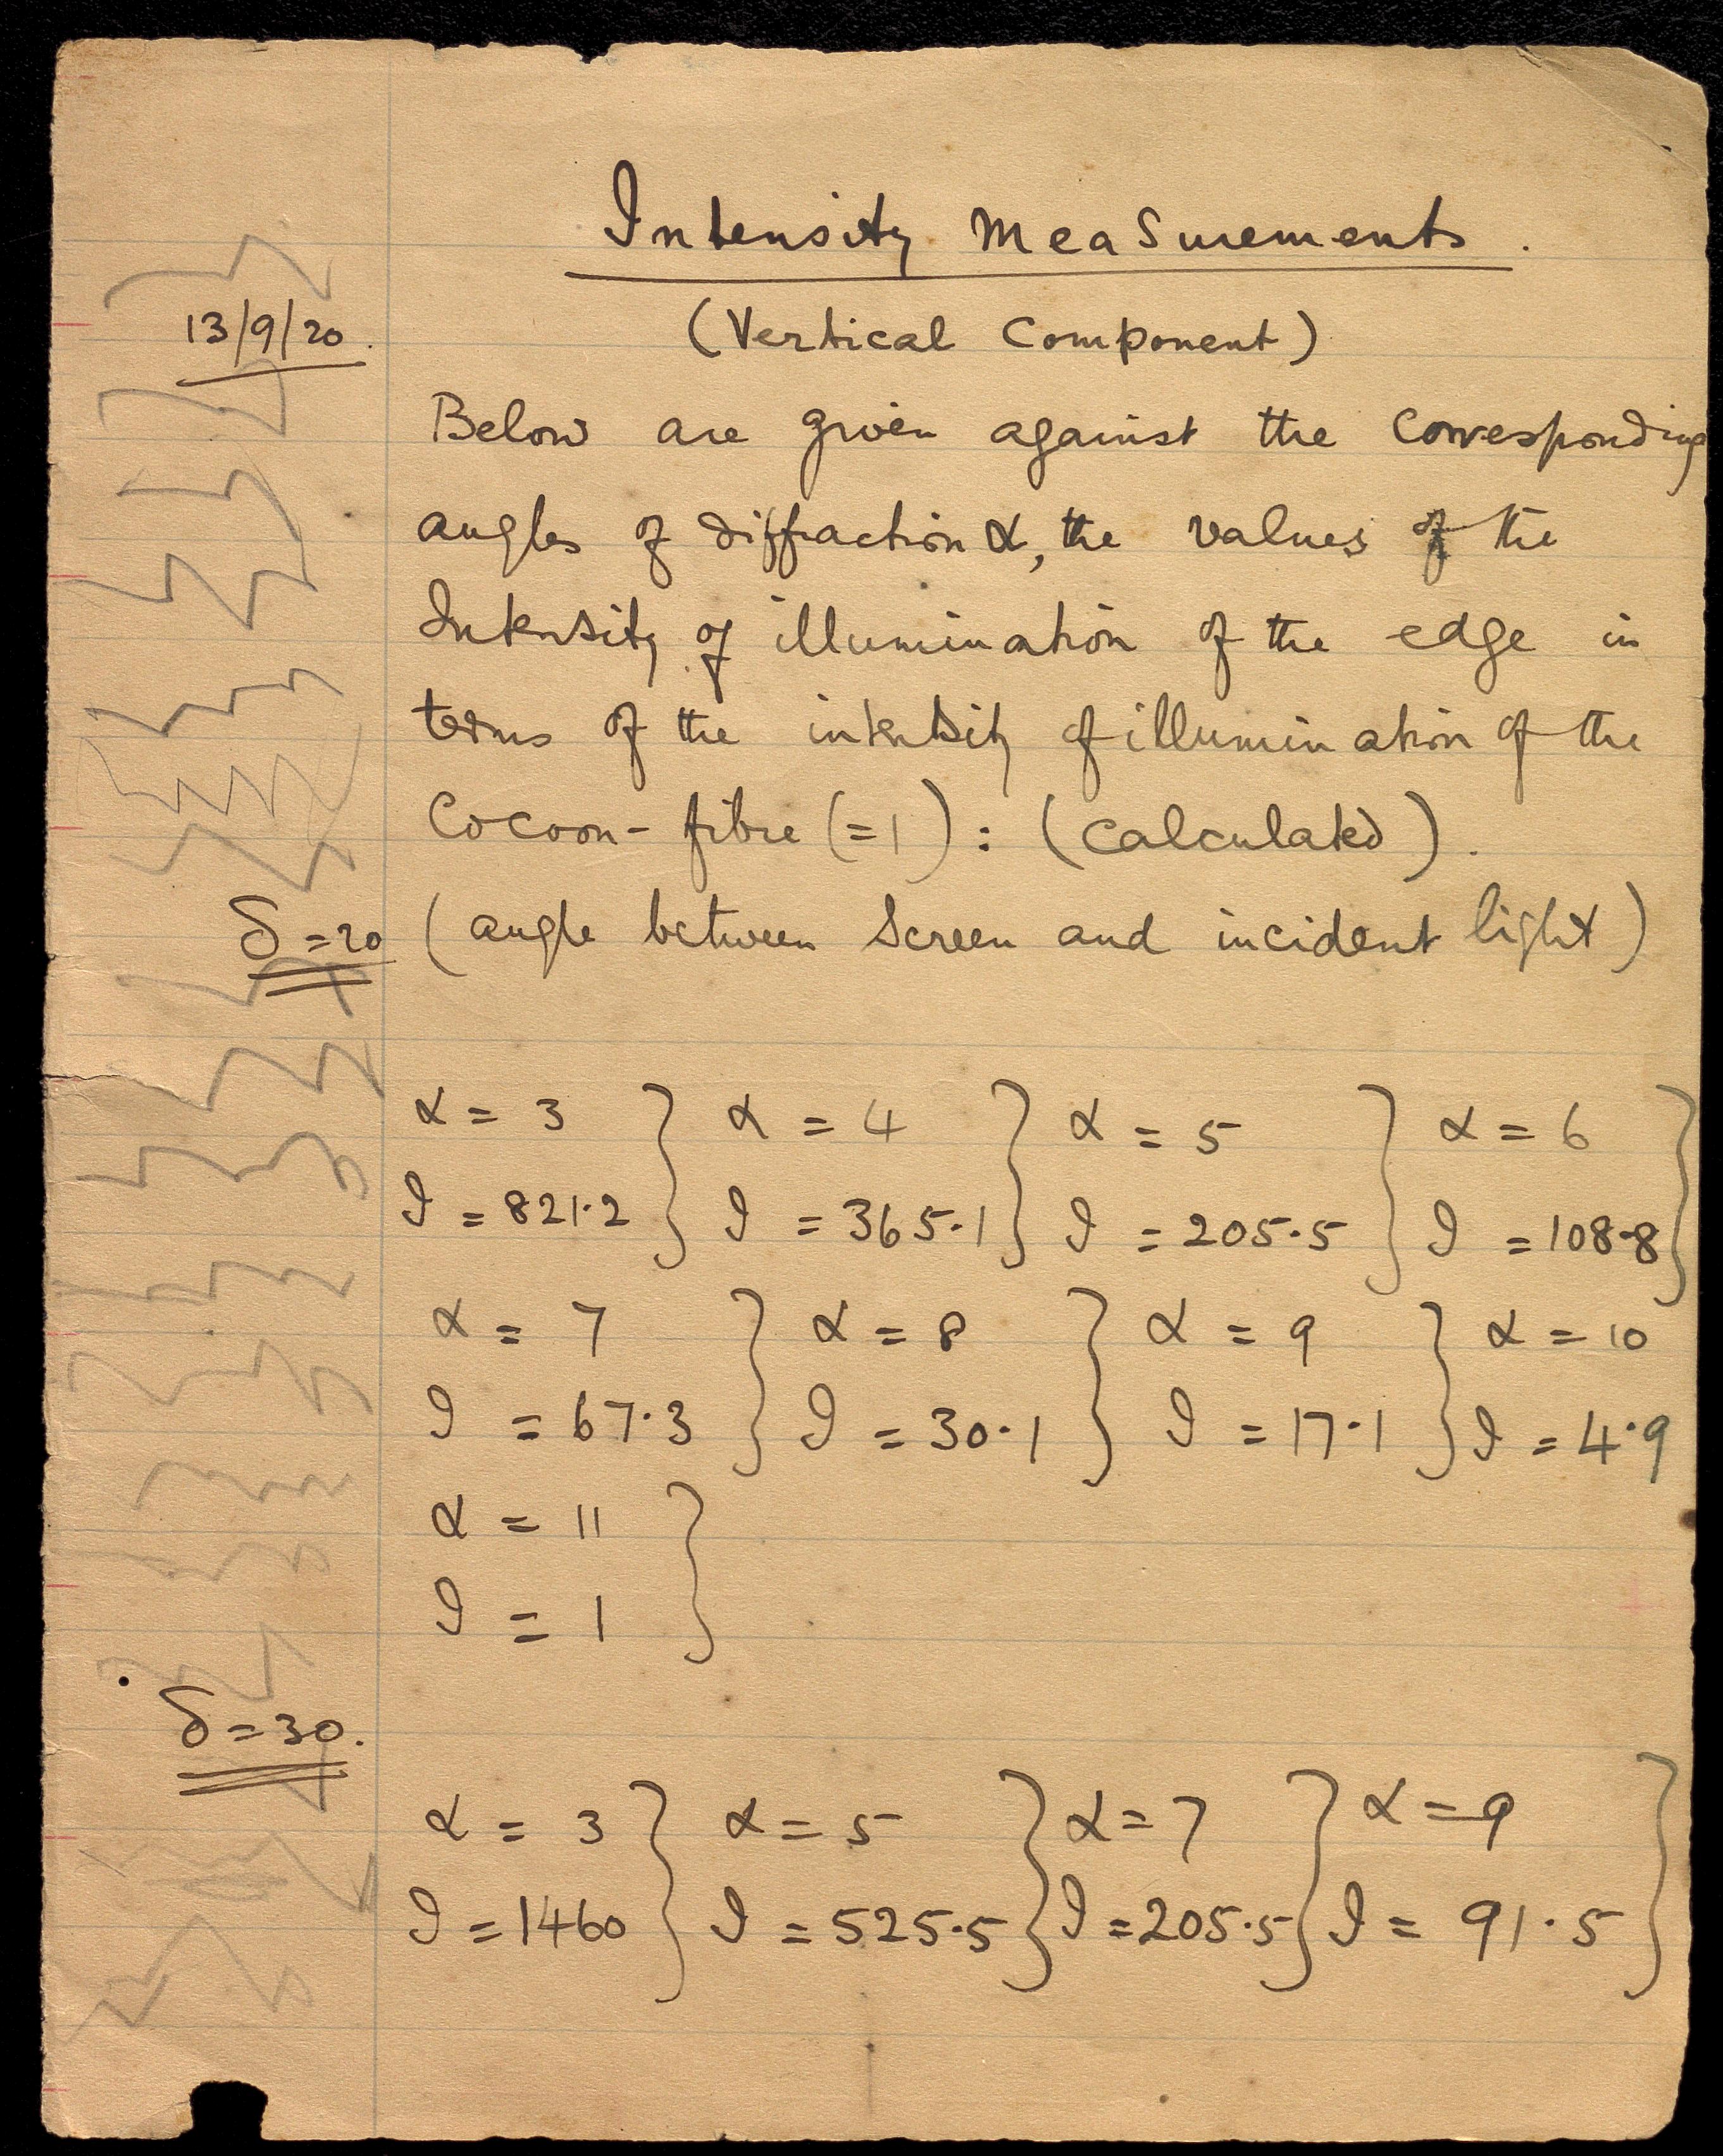 Intensity Measurements.
(Vertical Component)
13/9/20.
Below are given against the corresponding
angles of diffraction α, the values of the
Intensity of illumination of the edge in
terms of the intensity of illumination of the
Cocoon-fibre (=1): (calculated).
δ=20 (angle between Screen and incident light)
α = 3 } α = 4 } α = 5 } α = 6 }
I = 821·2 } I = 365·1 } I = 205·5 } I = 108·8 }
α = 7 } α = 8 } α = 9 } α = 10
I = 67·3 } I = 30·1 } I = 17·1 } I = 4·9
α = 11 }
I = 1 }
δ=30.
α = 3 } α = 5 } α = 7 } α = 9 }
I = 1460 } I = 525·5 } I = 205·5 } I = 91·5 }